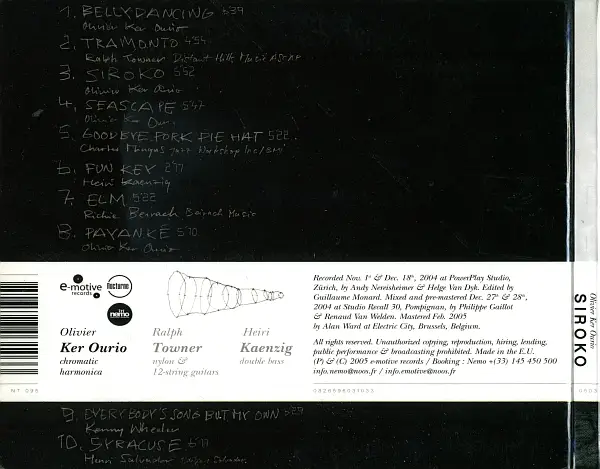 1. BELLYDANCING 5'39
Olivier Ker Ourio
2. TRAMONTO 4'54
Ralph Towner Distant Hills Music ASCAP
3. SIROKO 5'52
Olivier Ker Ourio
4. SEASCAPE 5'47
Olivier Ker Ourio
5. GOODBYE PORK PIE HAT 5'22
Charles Mingus Jazz Workshop Inc/BMI
6. FUN KEY
Heiri Kaenzig
7. ELM 5'22
Richie Beirach Beirach Music
8. PAYANKÉ 5'10
Olivier Ker Ourio
e-motive
records
nocturne
nemo
Olivier
Ker Ourio
chromatic
harmonica
Ralph
Towner
nylon &
12-string guitars
Heiri
Kaenzig
double bass
Recorded Nov. 1st & Dec. 18th, 2004 at PowerPlay Studio,
Zürich, by Andy Nereisheimer & Helge Van Dyk. Edited by
Guillaume Monard. Mixed and pre-mastered Dec. 27th & 28th,
2004 at Studio Recall 30, Pompignan, by Philippe Gaillot
& Renaud Van Welden. Mastered Feb. 2005
by Alan Ward at Electric City, Brussels, Belgium.
All rights reserved. Unauthorized copying, reproduction, hiring, lending,
public performance & broadcasting prohibited. Made in the E.U.
(P) & (C) 2005 e-motive records / Booking : Nemo +(33) 145 450 500
info.nemo@noos.fr / info.emotive@noos.fr
NT 095
9. EVERYBODY'S SONG BUT MY OWN
Kenny Wheeler
10. SYRACUSE
Henri Salvador
Olivier Ker Ourio
SIROKO